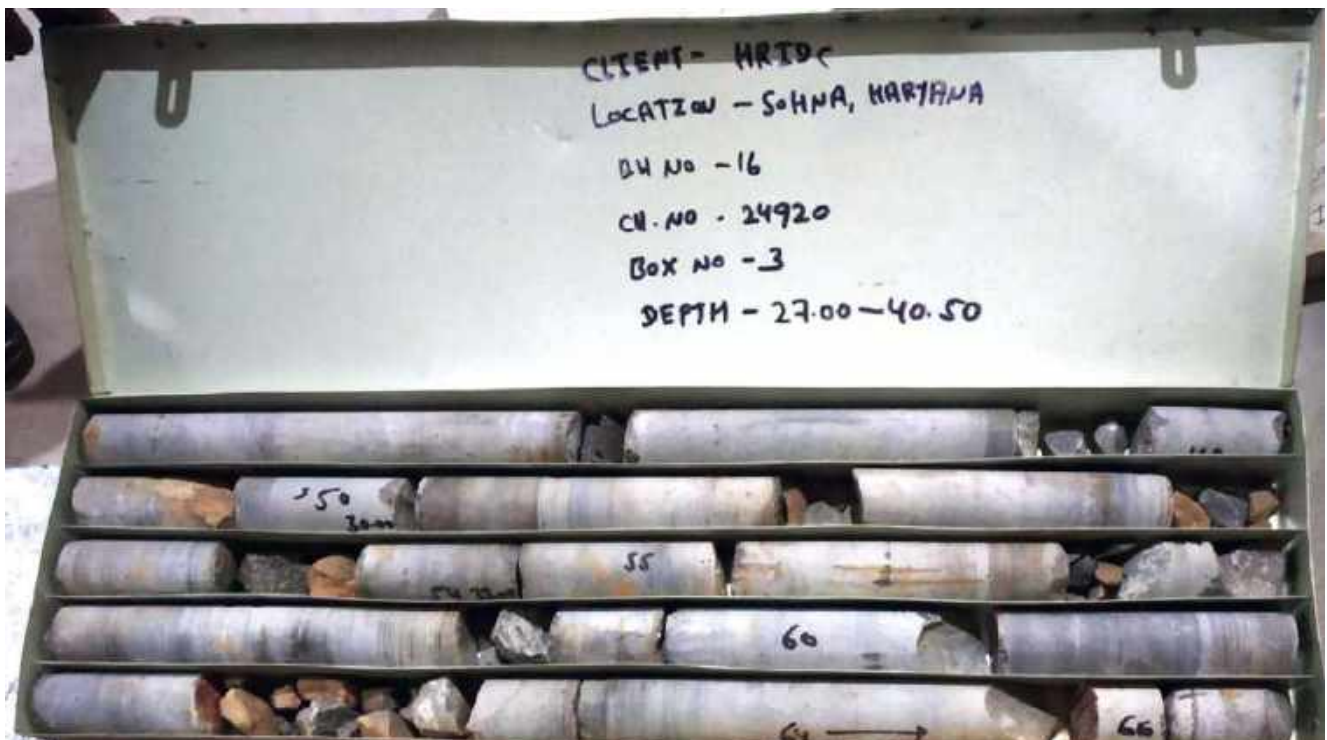 CLIENT - HRIDC
LOCATION - SOHNA, HARYANA
BH NO - 16
CH. NO - 24920
BOX NO - 3
DEPTH - 27.00 - 40.50
50
55
60
64
66